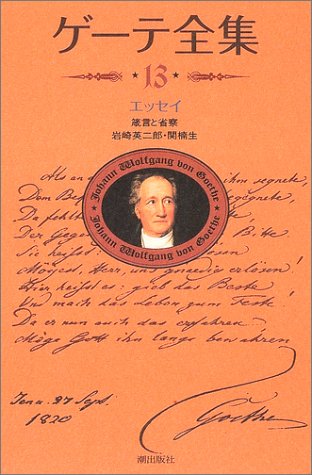 ゲーテ全集
★13★
エッセイ
箴言と省察
岩崎英二郎・関楠生
Johann Wolfgang von Goethe
Johann Wolfgang von Goethe
ihm segnete,
Dem
Da fehlt
Der Bitte,
Sie heißt
Herr, uns gnädig erlösen!
Hier heißt es: gieb das Beste
Und mach das Leben zum Feste!
Da er nun auch das erfahren,
Möge Gott ihn lange bewahren
Jena. 27 Sept.
1820
Goethe
潮出版社